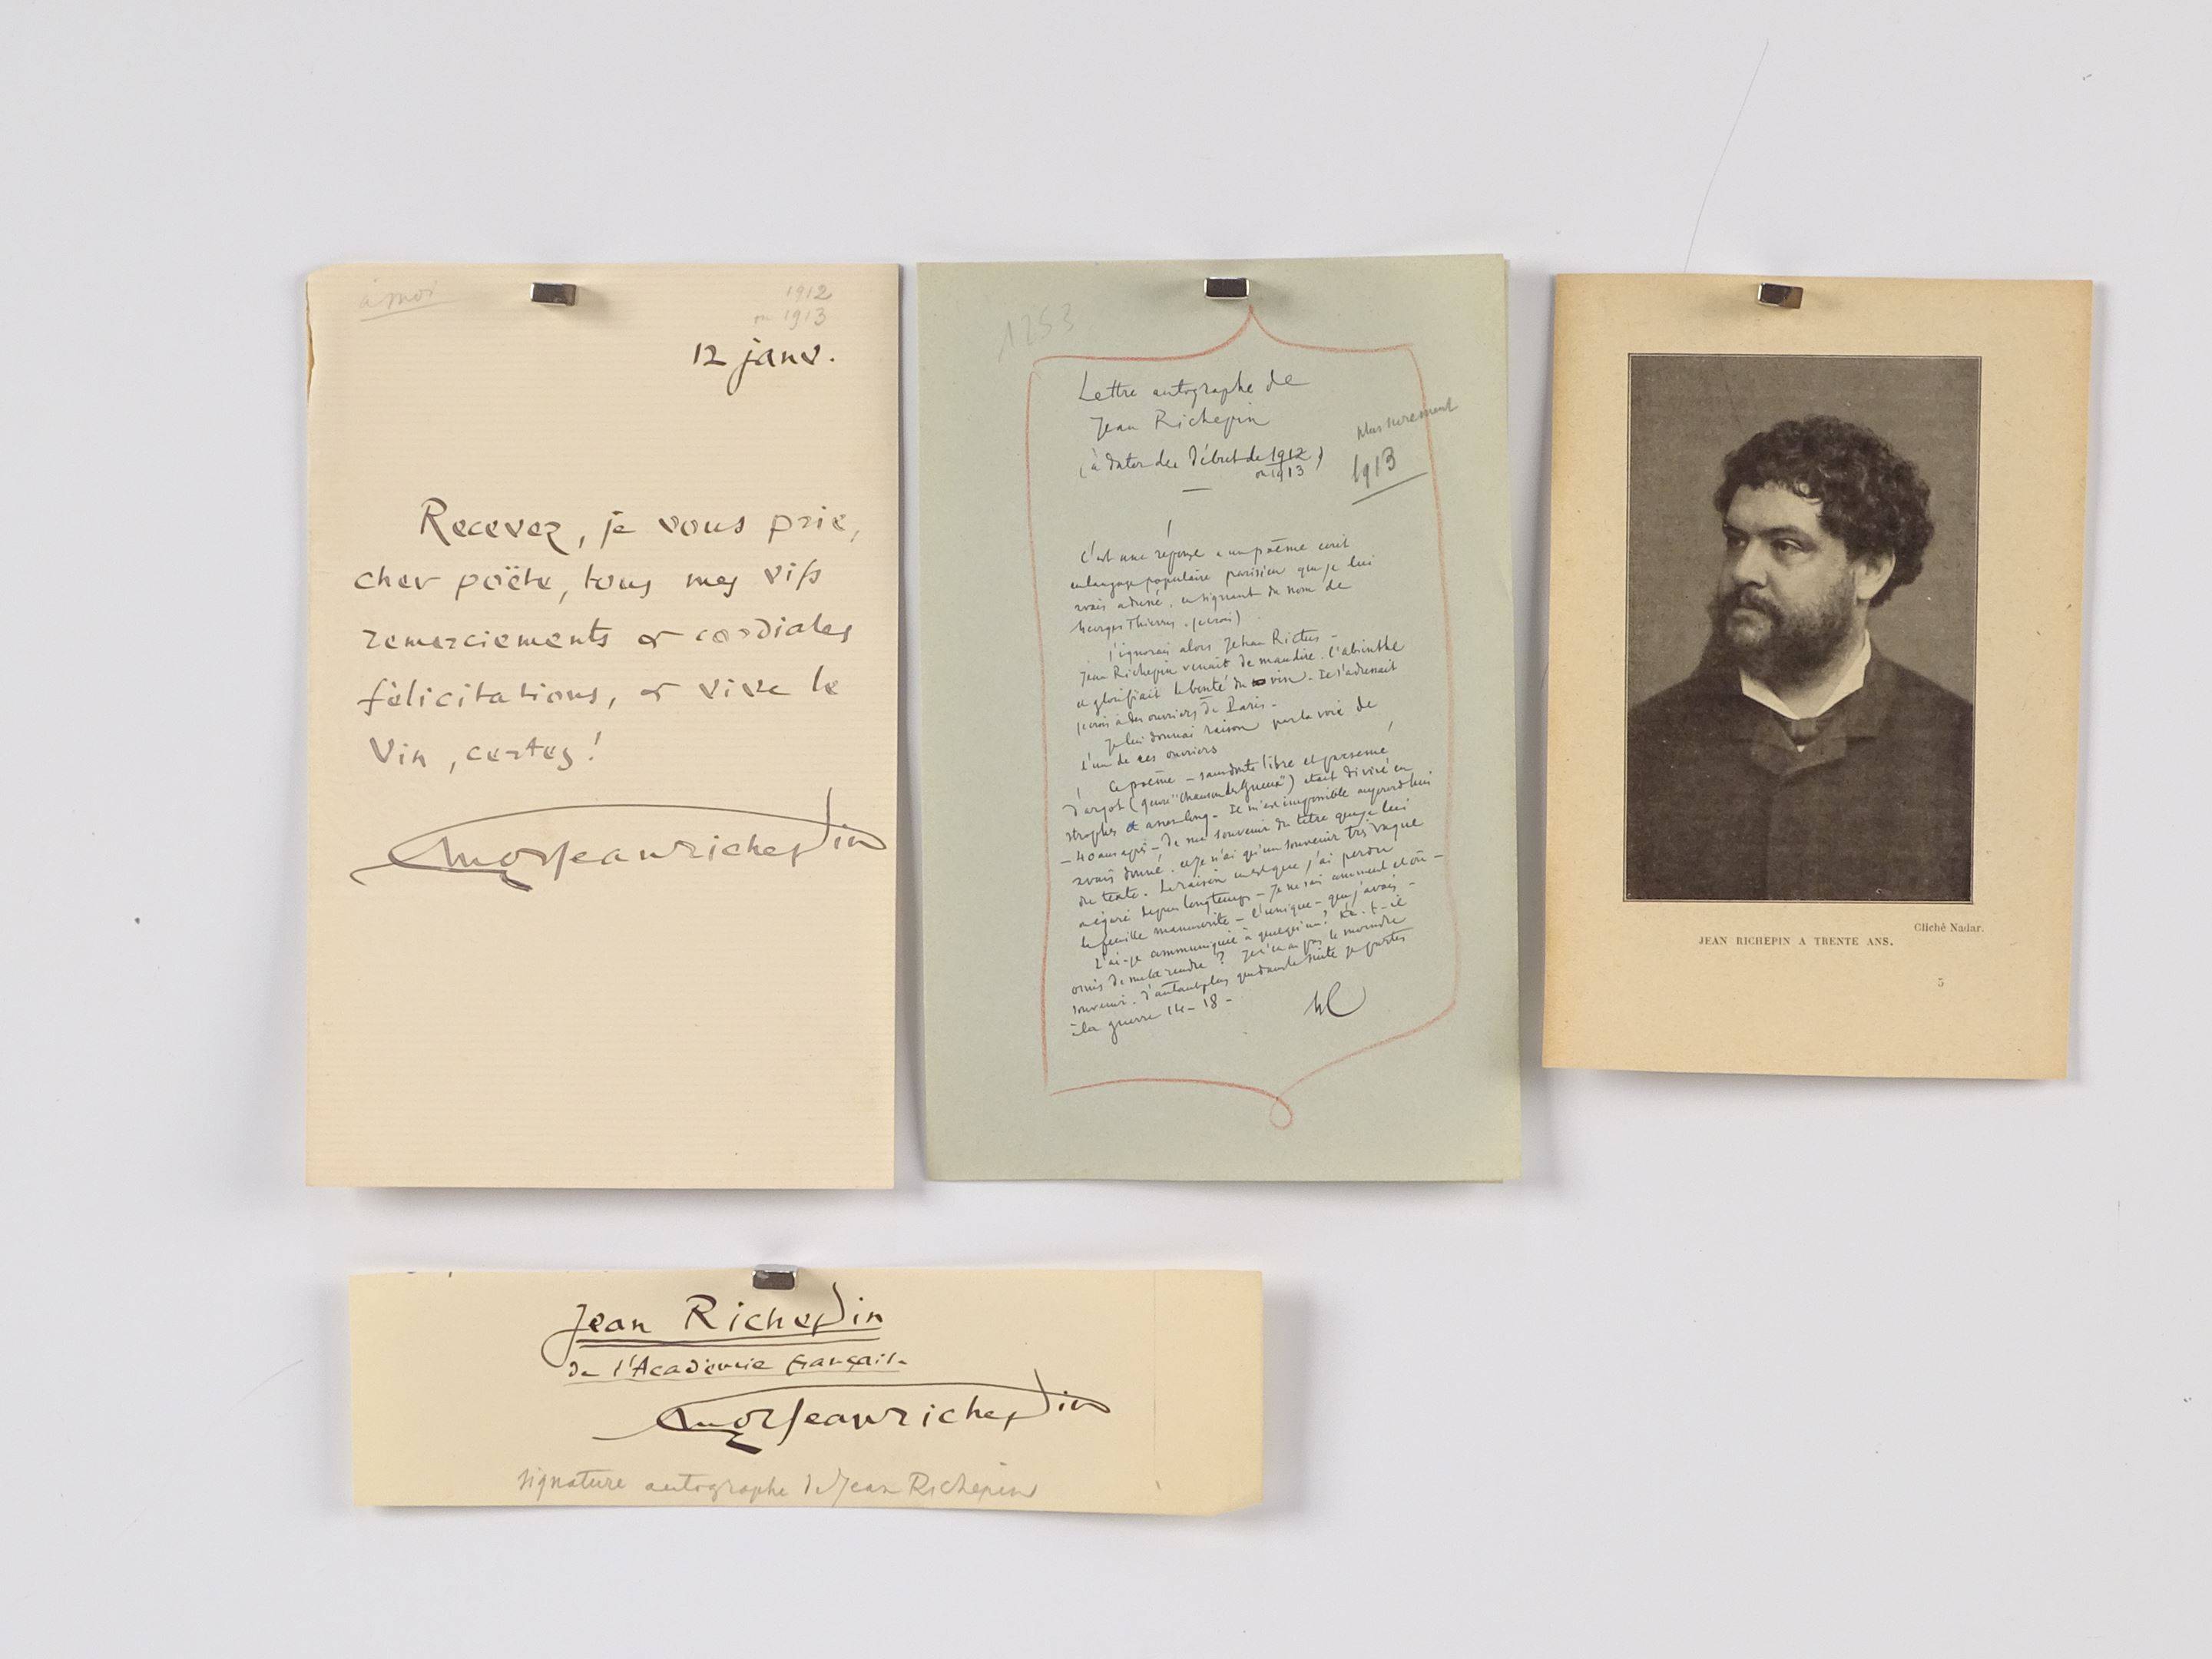 à moi
1912
ou 1913
12 janv.
Recevez, je vous prie,
cher poëte, tous mes vifs
remerciements et cordiales
félicitations, et vive le
Vin, certes!
Jean Richepin
1253
Lettre autographe de
Jean Richepin
(à dater du début de 1912)
ou 1913
plus surement
1913
C'est une réponse a un poème écrit
en langage populaire parisien que je lui
avais adressé, en signant du nom de
Georges Thierry. (je crois)
J'ignorais alors Jehan Rictus -
Jean Richepin venait de maudire l'absinthe
et glorifiait la bonté du vin. Il s'adressait
je crois à des ouvriers de Paris -
Je lui donnai raison par la voix de
l'un de ces ouvriers
Ce poème - sans doute libre et parsemé
d'argot (genre "Chanson des Gueux") était divisé en
strophes et assez long - Il m'est impossible aujourd'hui
- 40 ans après - de me souvenir du titre que je lui
avais donné, et je n'ai qu'un souvenir très vague
du texte. La raison est que j'ai perdu
ou égaré depuis longtemps - je ne sais comment et où -
la feuille manuscrite - l'unique - que j'avais -
L'ai-je communiquée à quelqu'un? Et a-t-il
omis de me la rendre? Je n'en ai pas le moindre
souvenir. d'autant plus que dans la suite je partis
à la guerre 14-18 -
JEAN RICHEPIN A TRENTE ANS.
Cliché Nadar.
5
Jean Richepin
de l'Académie française
Jean Richepin
signature autographe de Jean Richepin